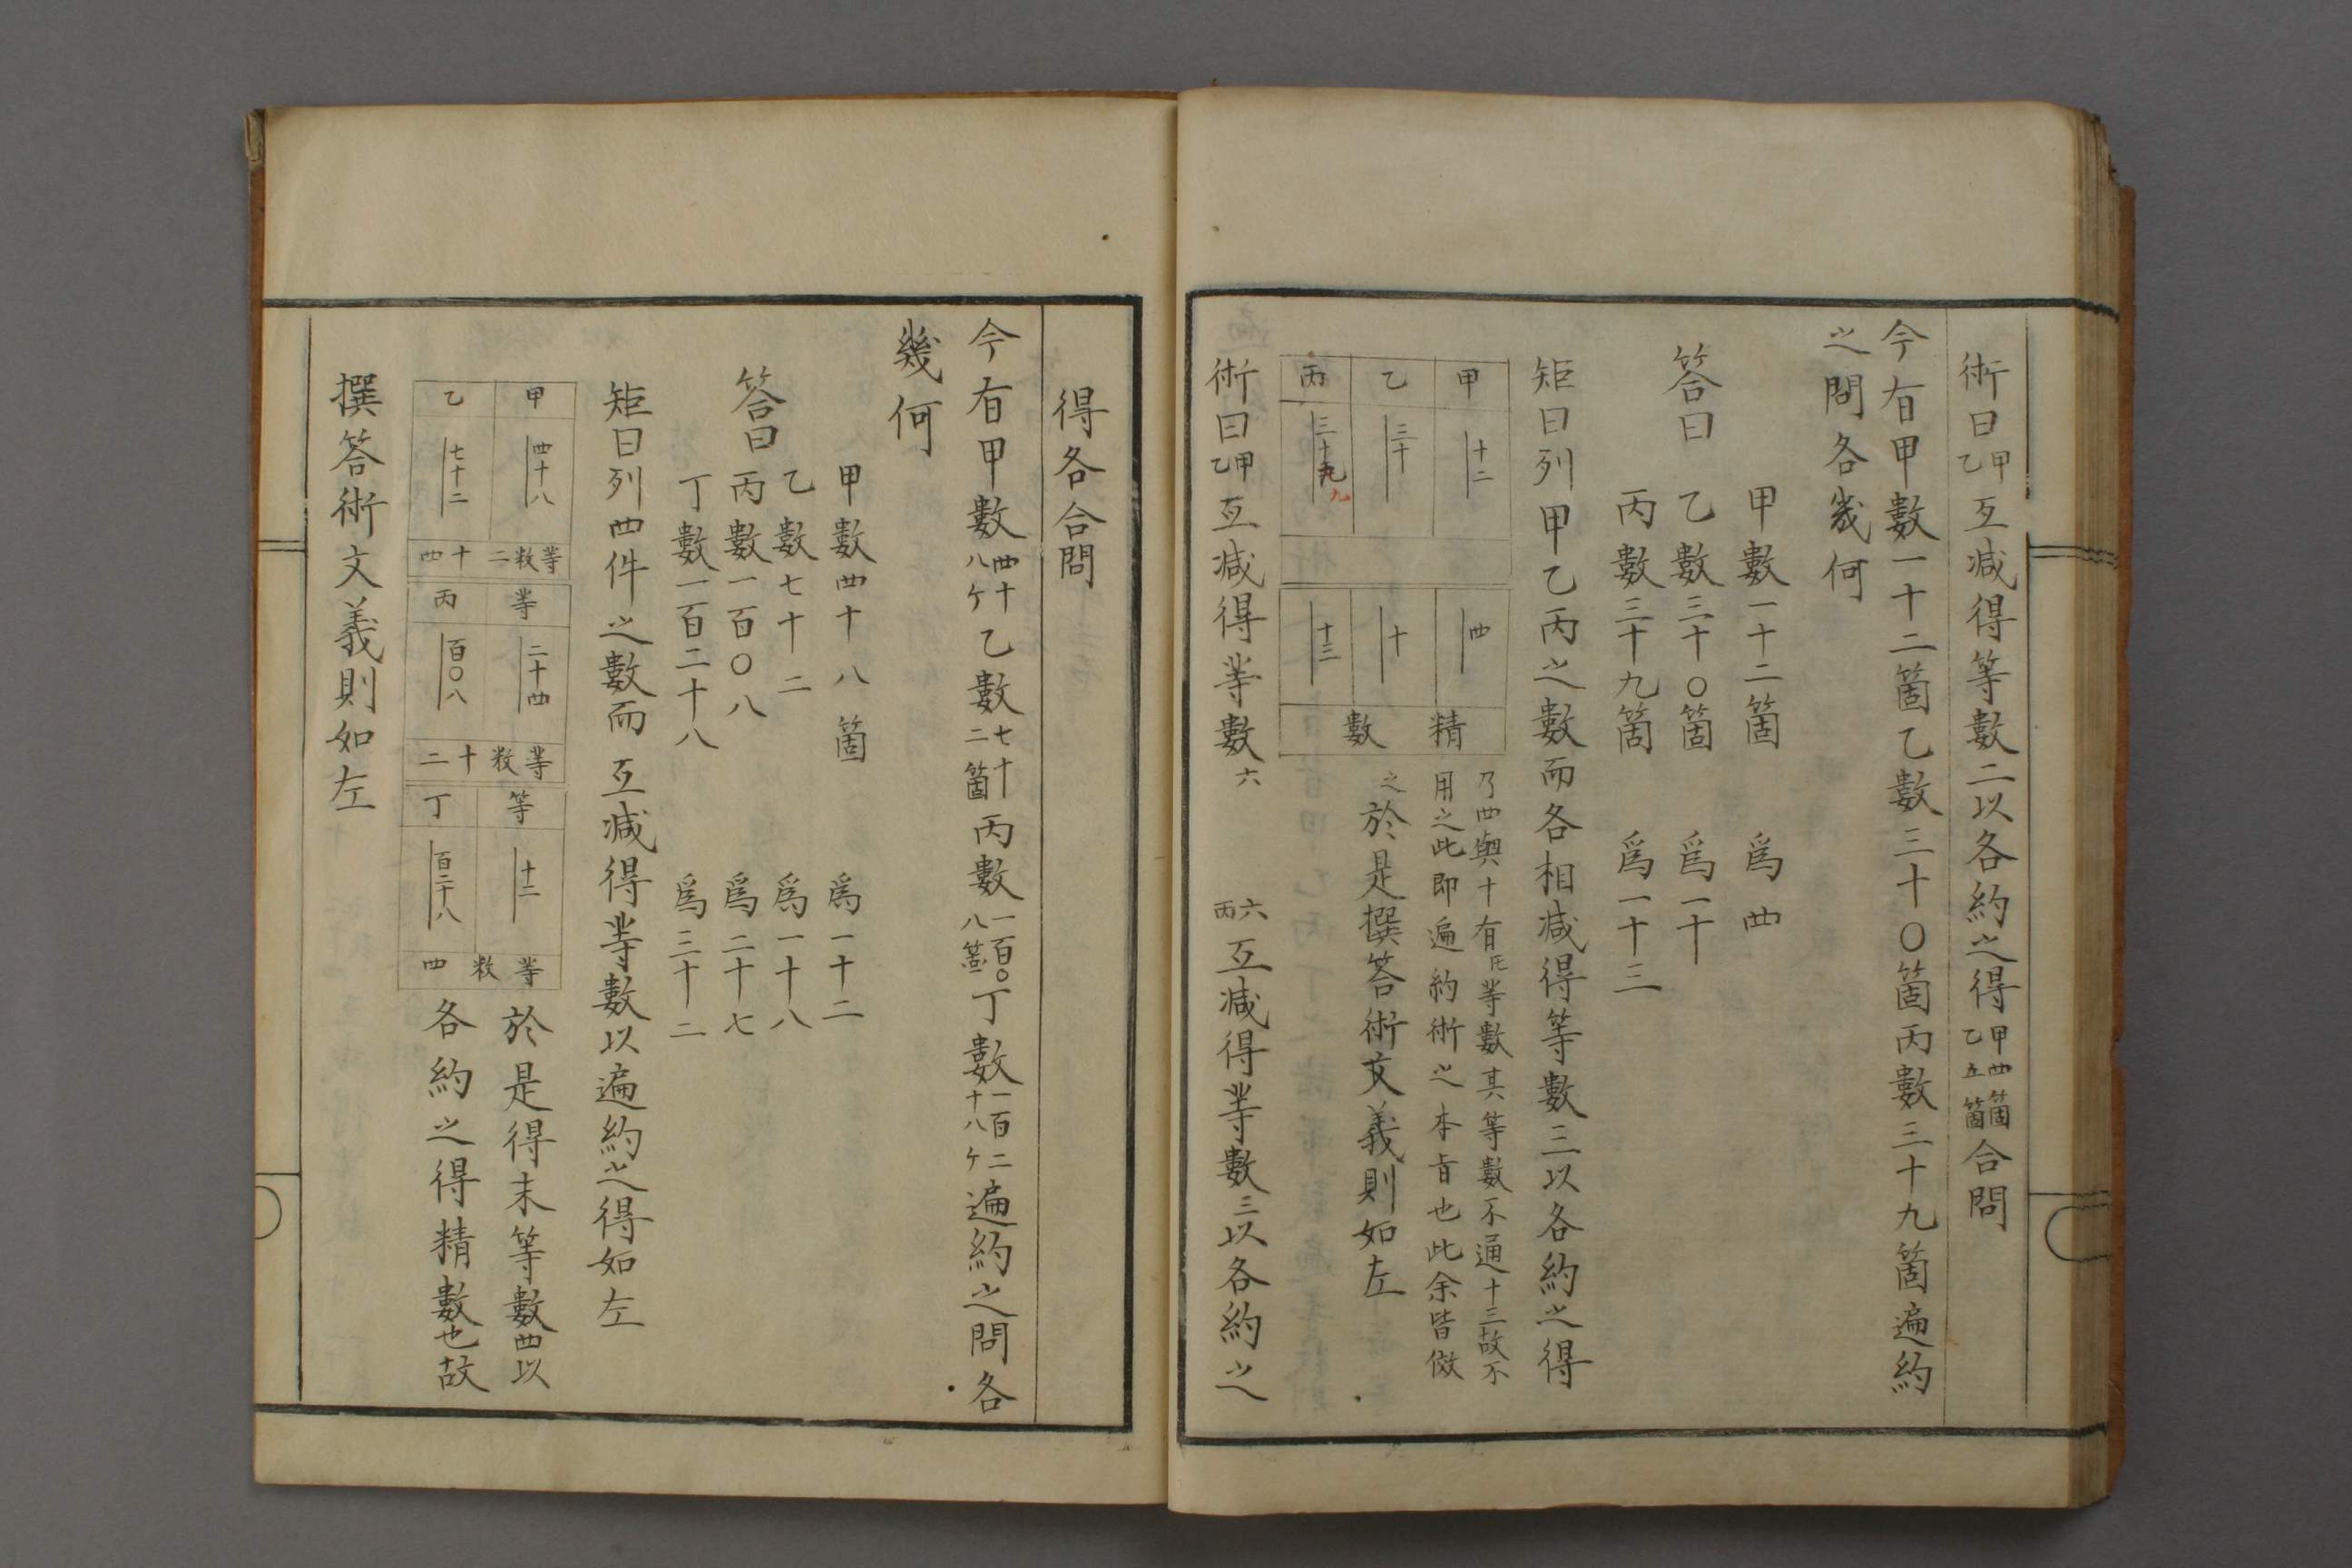 術曰甲乙互減得等數二以各約之得甲四箇乙五箇合問
今有甲數一十二箇乙數三十〇箇丙數三十九箇遍約
之問各幾何
答曰
甲數一十二箇 爲四
乙數三十〇箇 爲一十
丙數三十九箇 爲一十三
矩曰列甲乙丙之數而各相減得等數三以各約之得
甲 十二 四
乙 三十 十
丙 三十九 九 十三
精數
乃四與十有 等數其等數不通十三故不
用之此即遍約術之本旨也此余皆倣
之
於是撰答術文義則如左
術曰甲乙互減得等數六 六丙互減得等數三以各約之
得各合問
今有甲數四十八ケ乙數七十二箇丙數一百〇八箇丁數一百二十八ケ遍約之問各
幾何
答曰
甲數四十八箇 爲一十二
乙數七十二 爲一十八
丙數一百〇八 爲二十七
丁數一百二十八 爲三十二
矩曰列四件之數而互減得等數以遍約之得如左
甲 四十八
乙 七十二
等数二十四
等 二十四
丙 百〇八
等数十二
等 十二
丁 百二十八
等数四
於是得末等數四以
各約之得精數也故
撰答術文義則如左